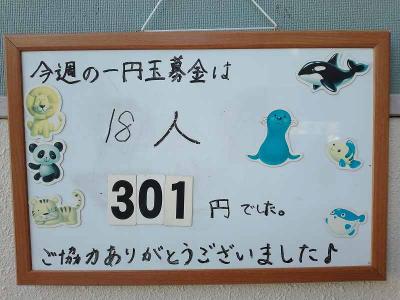 今週の一円玉募金は
18人
301円でした。
ご協力ありがとうございました♪